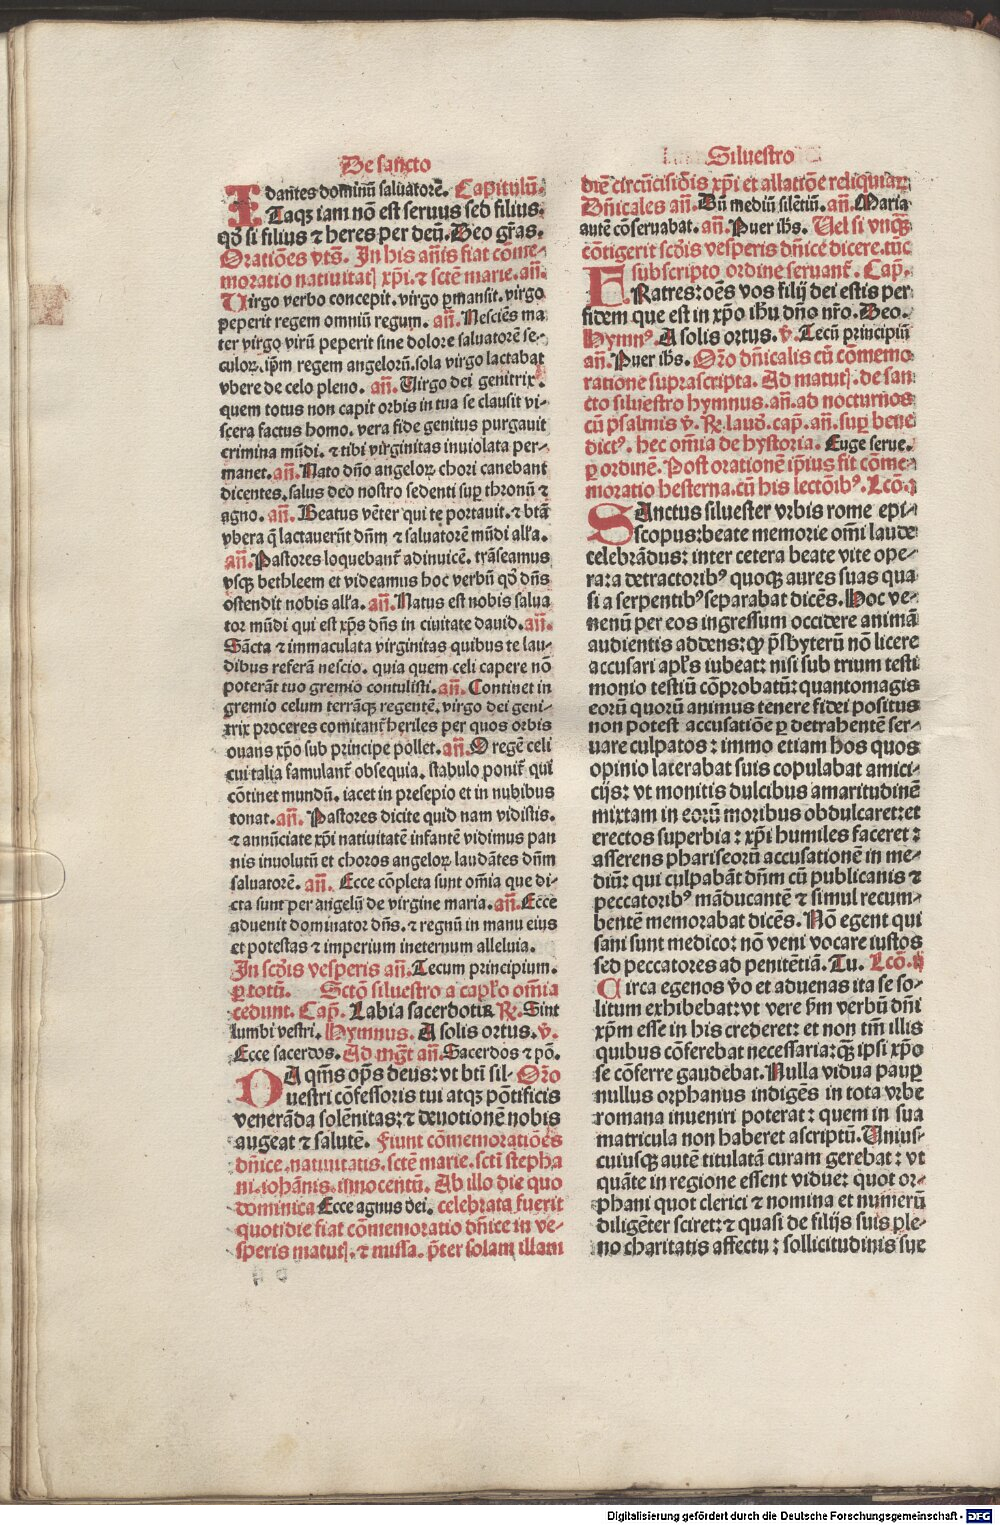 De sancto
dantes dominū saluatorē. Capitulū.
ITaqꝫ iam nō est seruus sed filius.
qď si filius ⁊ heres per deū. Deo gr̄as.
Orationes vts̄. In his añis fiat cōme-
moratio natiuitatꝭ xp̄i. ⁊ sctē marie. añ.
Virgo verbo concepit. virgo ꝑmansit. virgo
peperit regem omniū regum. añ. Nesciēs ma
ter virgo virū peperit sine dolore saluatorē se-
culoꝝ. ip̄m regem angelorū. sola virgo lactabat
vbere de celo pleno. añ. Virgo dei genitrix.
quem totus non capit orbis in tua se clausit vi-
scera factus homo. vera fide genitus purgauit
crimina mūdi. ⁊ tibi virginitas inuiolata per-
manet. añ. Nato dño angeloꝝ chori canebant
dicentes. salus deo nostro sedenti suꝑ thronū ⁊
agno. añ. Beatus vēter qui te portauit. ⁊ btā
vbera q̄ lactauerūt dn̄m ⁊ saluatorē mūdi alľa.
añ. Pastores loquebant̄ adinuicē. trāseamus
vsqꝫ bethleem et videamus hoc verbū qď dn̄s
ostendit nobis alľa. añ. Natus est nobis salua
tor mūdi qui est xp̄s dn̄s in ciuitate dauid. añ.
Sācta ⁊ immaculata virginitas quibus te lau-
dibus referā nescio. quia quem celi capere nō
poterāt tuo gremio contulisti. añ. Continet in
gremio celum terrāqꝫ regentē. virgo dei geni-
trix proceres comitant̄ heriles per quos orbis
ouans xp̄o sub principe pollet. añ. O regē celi
cui talia famulant̄ obsequia. stabulo ponit̄ qui
cōtinet mundū. iacet in presepio et in nubibus
tonat. añ. Pastores dicite quid nam vidistis.
⁊ annūciate xp̄i natiuitatē infantē vidimus pan
nis inuolutū et choros angeloꝝ laudātes dn̄m
saluatorē. añ. Ecce cōpleta sunt om̄ia que di-
cta sunt per angelū de virgine maria. añ. Ecce
aduenit dominator dn̄s. ⁊ regnū in manu eius
et potestas ⁊ imperium ineternum alleluia.
In scďis vesperis añ. Tecum principium.
ꝑ totū. Sctō siluestro a capľo om̄ia
cedunt. Cap̄. Labia sacerdotis ℟. Sint
lumbi vestri. Hymnus. A solis ortus. v̄.
Ecce sacerdos. Ad mḡt añ. Sacerdos ⁊ pō.
DA qm̄s op̄s deus: vt bt̄i sil- Or̄o
uestri cōfessoris tui atqꝫ pōtificis
venerāda solēnitas: ⁊ deuotionē nobis
augeat ⁊ salutē. Fiunt cōmemorationēs
dn̄ice natiuitatis. sctē marie. sctī stepha
ni. iohānis. innocentū. Ab illo die quo
dominica Ecce agnus dei. celebrata fuerit
quotidie fiat cōmemoratio dn̄ice in ve-
speris matutꝭ. ⁊ missa. p̄ter solam illam
Siluestro
diē circūcisiōis xp̄i et allatiōe reliquiaꝝ
Dn̄icales añ. Dū mediū silētiū. añ. Maria
autē cōseruabat. añ. Puer ihs̄. Vel si vnqꝫ
cōtigerit scďis vesperis dn̄ice dicere. tūc
subscripto ordine seruant̄. Cap̄.
FRatres: oēs vos filij dei estis per
fidem que est in xp̄o ihū dn̄o nr̄o. Deo.
Hymnꝰ. A solis ortus. v̄. Tecū principiū
añ. Puer ihs̄. Or̄o dn̄icalis cū cōmemo
ratione suprascripta. Ad matutꝭ. de san
cto siluestro hymnus. añ. ad nocturnos
cū psalmis v̄. ℟. lauď. cap̄. añ. suꝑ bene
dictꝰ. hec om̄ia de hystoria. Euge serue.
ꝑ ordinē. Post orationē ip̄ius fit cōme-
moratio hesterna. cū his lectōibꝰ. Lcō.j
SAnctus siluester vrbis rome epi-
scopus: beate memorie om̄i laude
celebrādus: inter cetera beate vite ope-
ra: a detractoribꝰ quoqꝫ aures suas qua
si a serpentibꝰ separabat dicēs. Hoc ve-
nenū per eos ingressum occidere animā
audientis addens: qꝫ p̄sbyterū nō licere
accusari apľs iubeat: nisi sub trium testi
monio testiū cōprobatū: quantomagis
eorū quorū animus tenere fidei positus
non potest accusatiōe ꝑ detrahentē ser-
uare culpatos: immo etiam hos quos
opinio laterabat suis copulabat amici-
cijs: vt monitis dulcibus amaritudinē
mixtam in eorū moribus obdulcaret: et
erectos superbia: xp̄i humiles faceret:
asserens phariseorū accusationē in me-
diū: qui culpabāt dn̄m cū publicanis ⁊
peccatoribꝰ māducantē ⁊ simul recum-
bentē memorabat dicēs. Nō egent qui
sani sunt medico: nō veni vocare iustos
sed peccatores ad penitētiā. Tu. Lcō.ij
Circa egenos v̄o et aduenas ita se so-
litum exhibebat: vt vere ẜm verbū dn̄i
xp̄m esse in his crederet: et non tm̄ illis
quibus cōferebat necessaria: qꝫ ipsi xp̄o
se cōferre gaudebat. Nulla vidua pauꝑ
nullus orphanus indigēs in tota vrbe
romana inueniri poterat: quem in sua
matricula non haberet ascriptū. Vnius-
cuiusqꝫ autē titulatā curam gerebat: vt
quāte in regione essent vidue: quot or-
phani quot clerici ⁊ nomina et numerū
diligēter sciret: ⁊ quasi de filijs suis ple-
no charitatis affectu: sollicitudinis sue
Digitalisierung gefördert durch die Deutsche Forschungsgemeinschaft - DFG